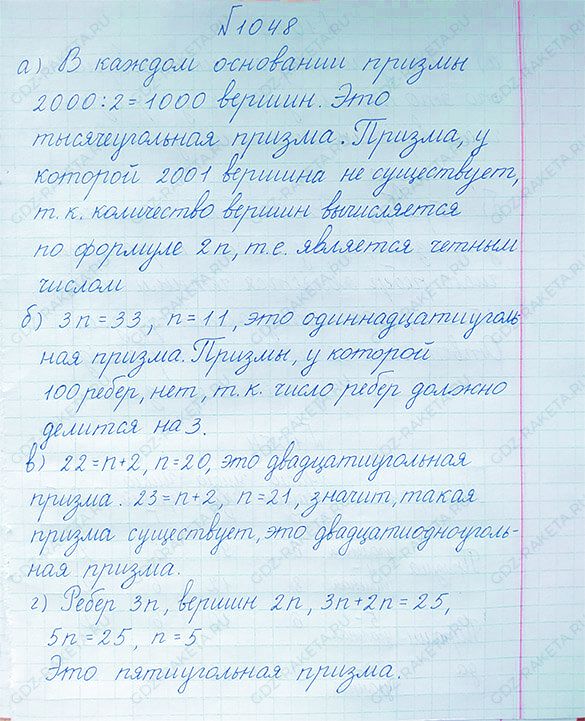 №1048
а) В каждом основании призмы
2000:2=1000 вершин. Это
тысячеугольная призма. Призма, у
которой 2001 вершина не существует,
т.к. количество вершин вычисляется
по формуле 2n, т.е. является четным
числом
б) 3n=33, n=11, это одиннадцатиуголь-
ная призма. Призмы, у которой
100 ребер, нет, т.к. число ребер должно
делится на 3.
в) 22=n+2, n=20, это двадцатиугольная
призма. 23=n+2, n=21, значит, такая
призма существует, это двадцатиодноуголь-
ная призма.
г) Ребер 3n, вершин 2n, 3n+2n=25,
5n=25, n=5
Это пятиугольная призма.
GDZ-RAKETA.RU